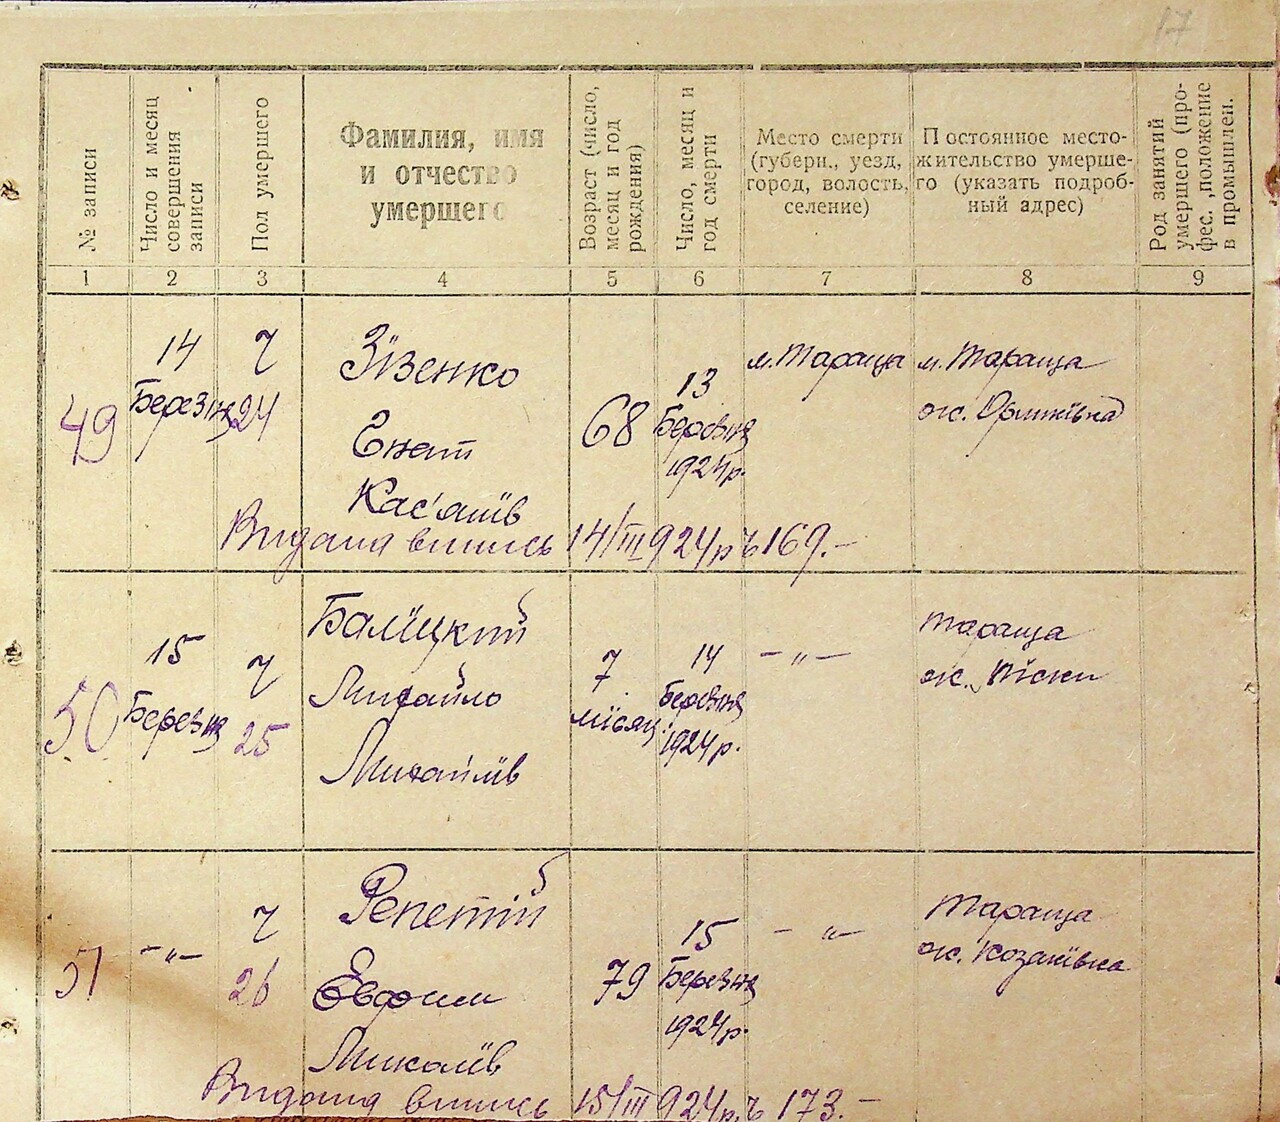 17
№ записи
Число и месяц
совершения
записи
Пол умершего
Фамилия, имя
и отчество
умершего
Возраст (число,
месяц и год
рождения)
Число, месяц и
год смерти
Место смерти
(губерн., уезд,
город, волость,
селение)
Постоянное место-
жительство умерше-
го (указать подроб-
ный адрес)
Род занятий
умершего (про-
фес., положение
в промышлен.
1 2 3 4 5 6 7 8 9
49
14
Березня
Ч
24
Зїзенко
Гнат
Кас'янів
68
13
Березня
1924 р.
м. Тараща
м. Тараща
ок.
Видана випись 14/III 924 р. Ч 169.—
50
15
Березня
Ч
25
Баліцкий
Михайло
Михайлів
7
місяц.
14
Березня
1924 р.
—"—
Тараща
ок. Піски
51
—"—
Ч
26
Репетій
Евфим
Миколів
79
15
Березня
1924 р.
—"—
Тараща
ок. Козаківка
Видана випись 15/III 924 р. Ч 173.—